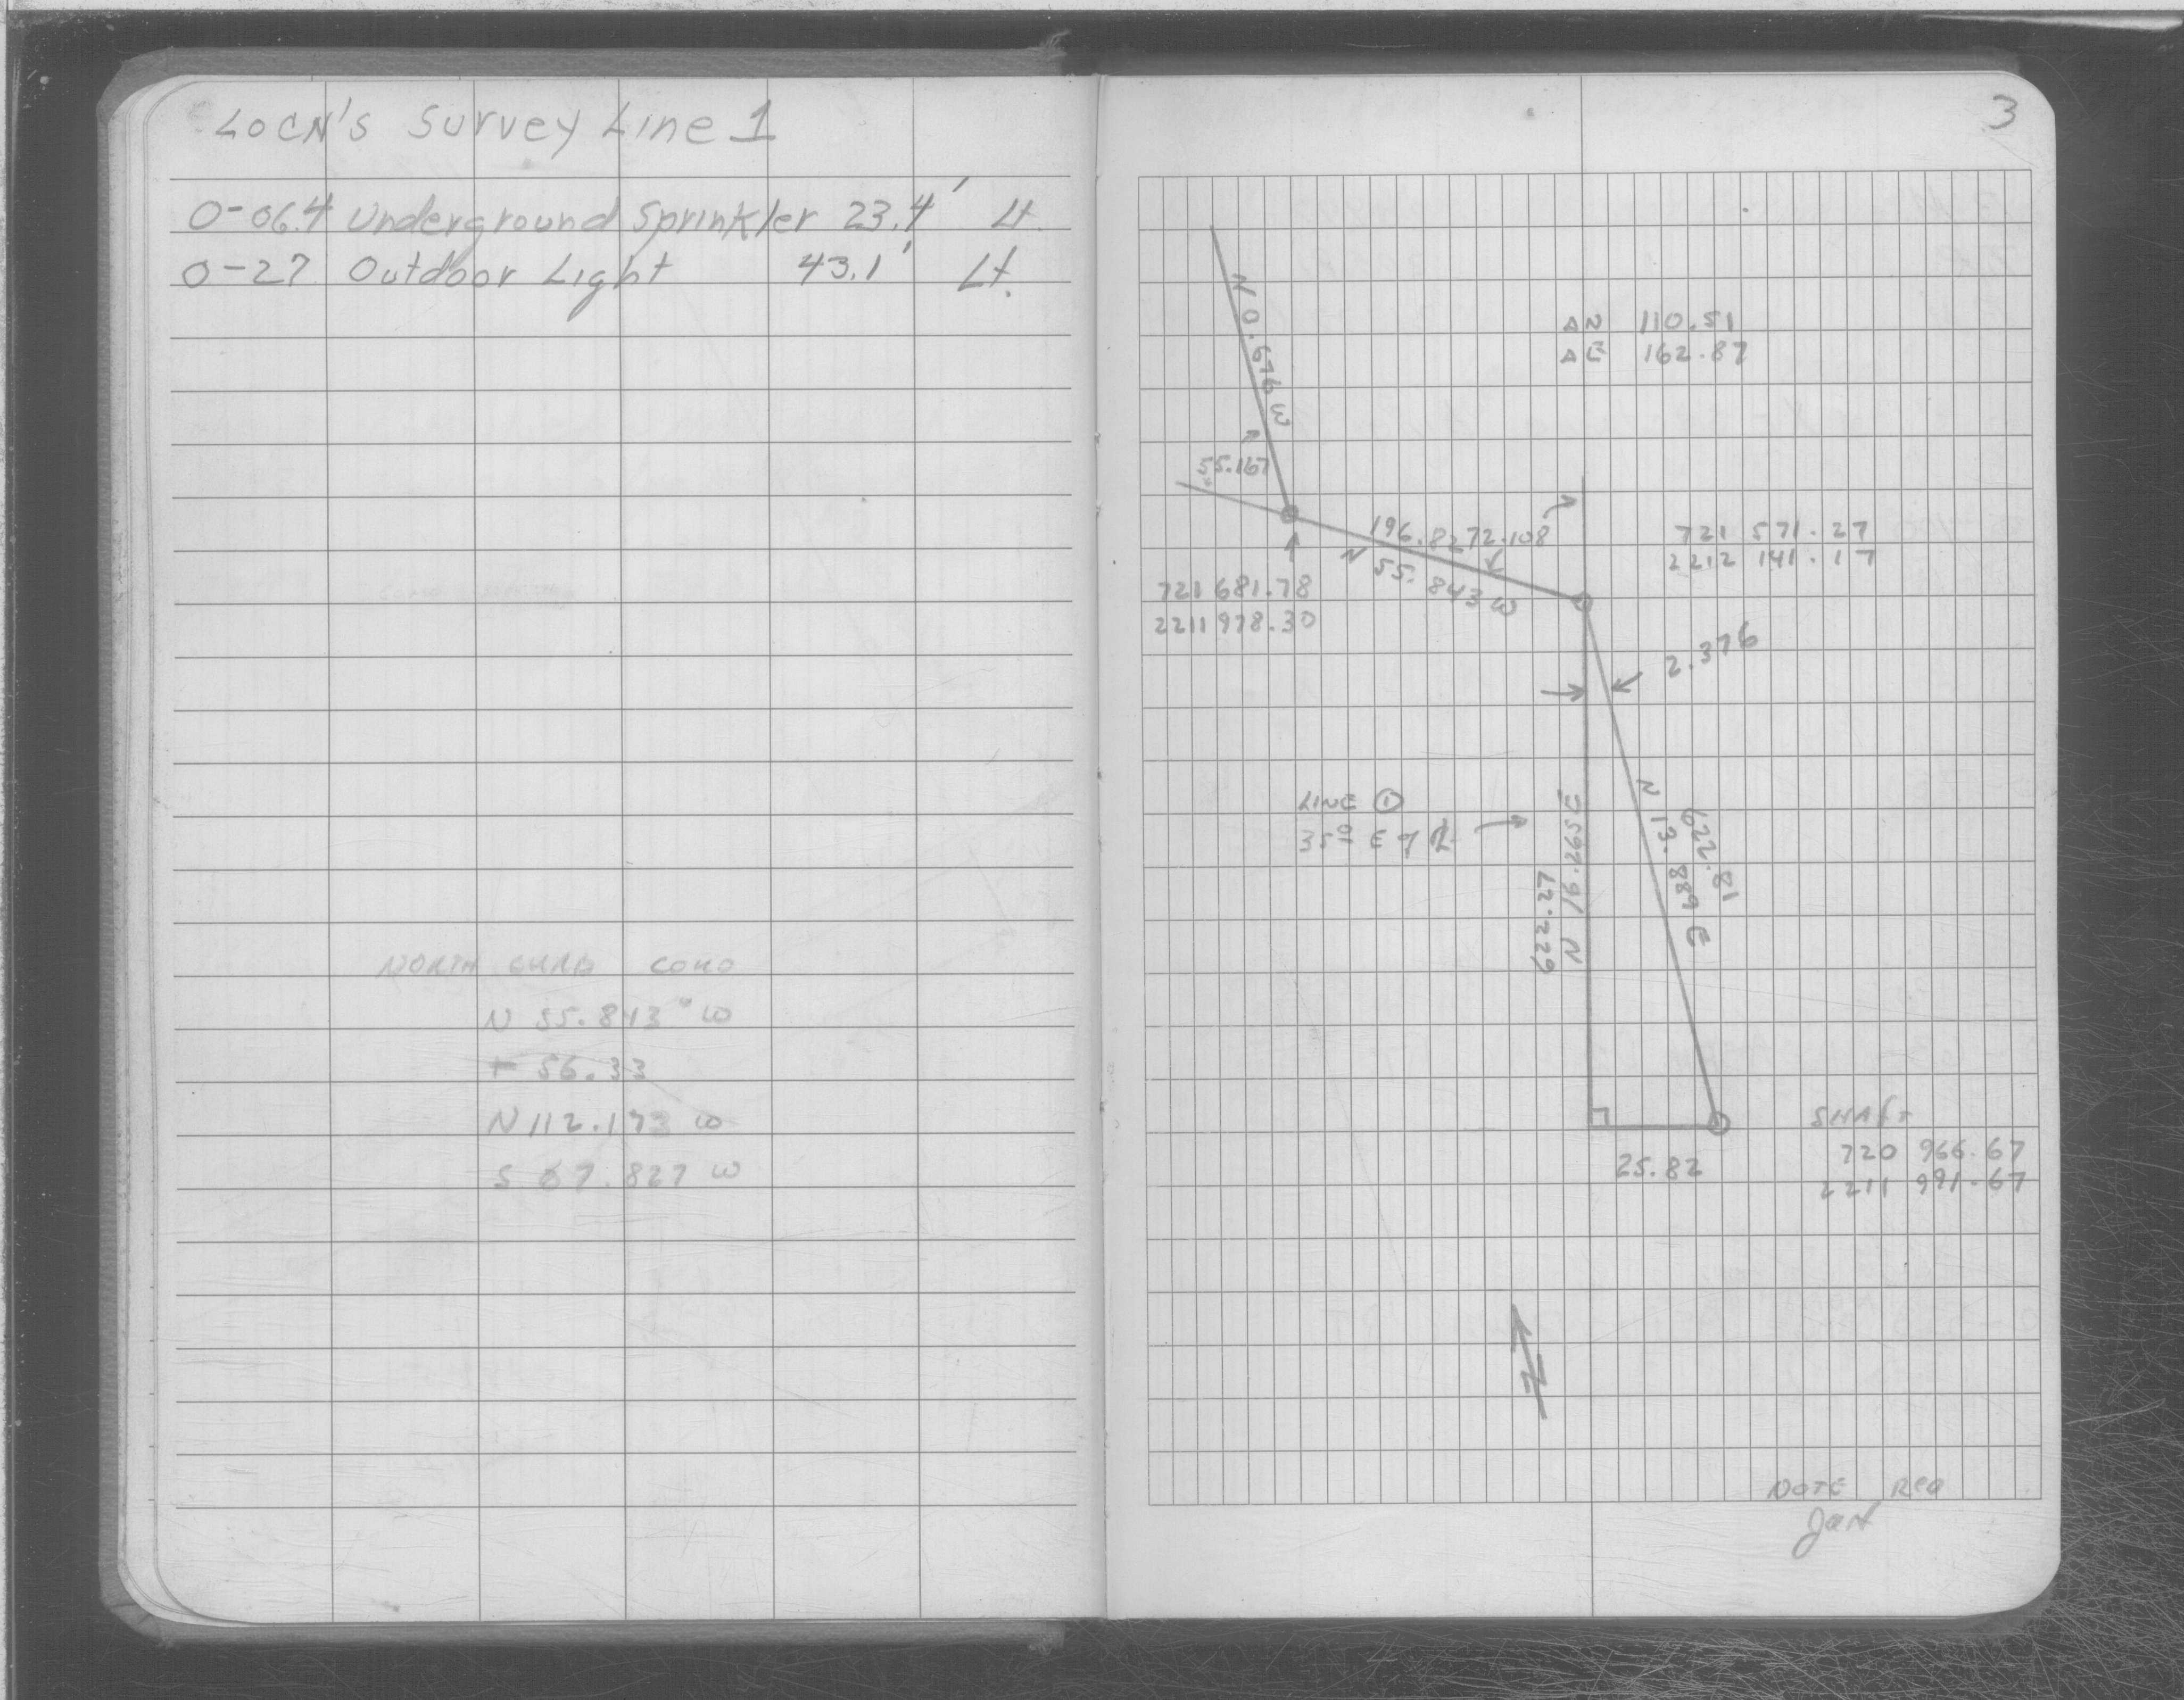 LOCN'S Survey Line 1
0-06.4 Underground Sprinkler 23.4' Lt.
0-27 Outdoor Light 43.1' Lt.
N 55.843° W
+ 56.33
N 112.173 W
S 67.827 W
3
N 0.676 W
ΔN 110.51
ΔE 162.87
55.167
196.82
72.108
N 55.843 W
721 571.27
2212 141.17
721 681.78
2211 978.30
2.376
LINE ①
35º E of ℄
N 16.265 E
622.27
N 13.889 E
622.81
SHAFT
720 966.67
2211 991.67
25.82
N
NOTE